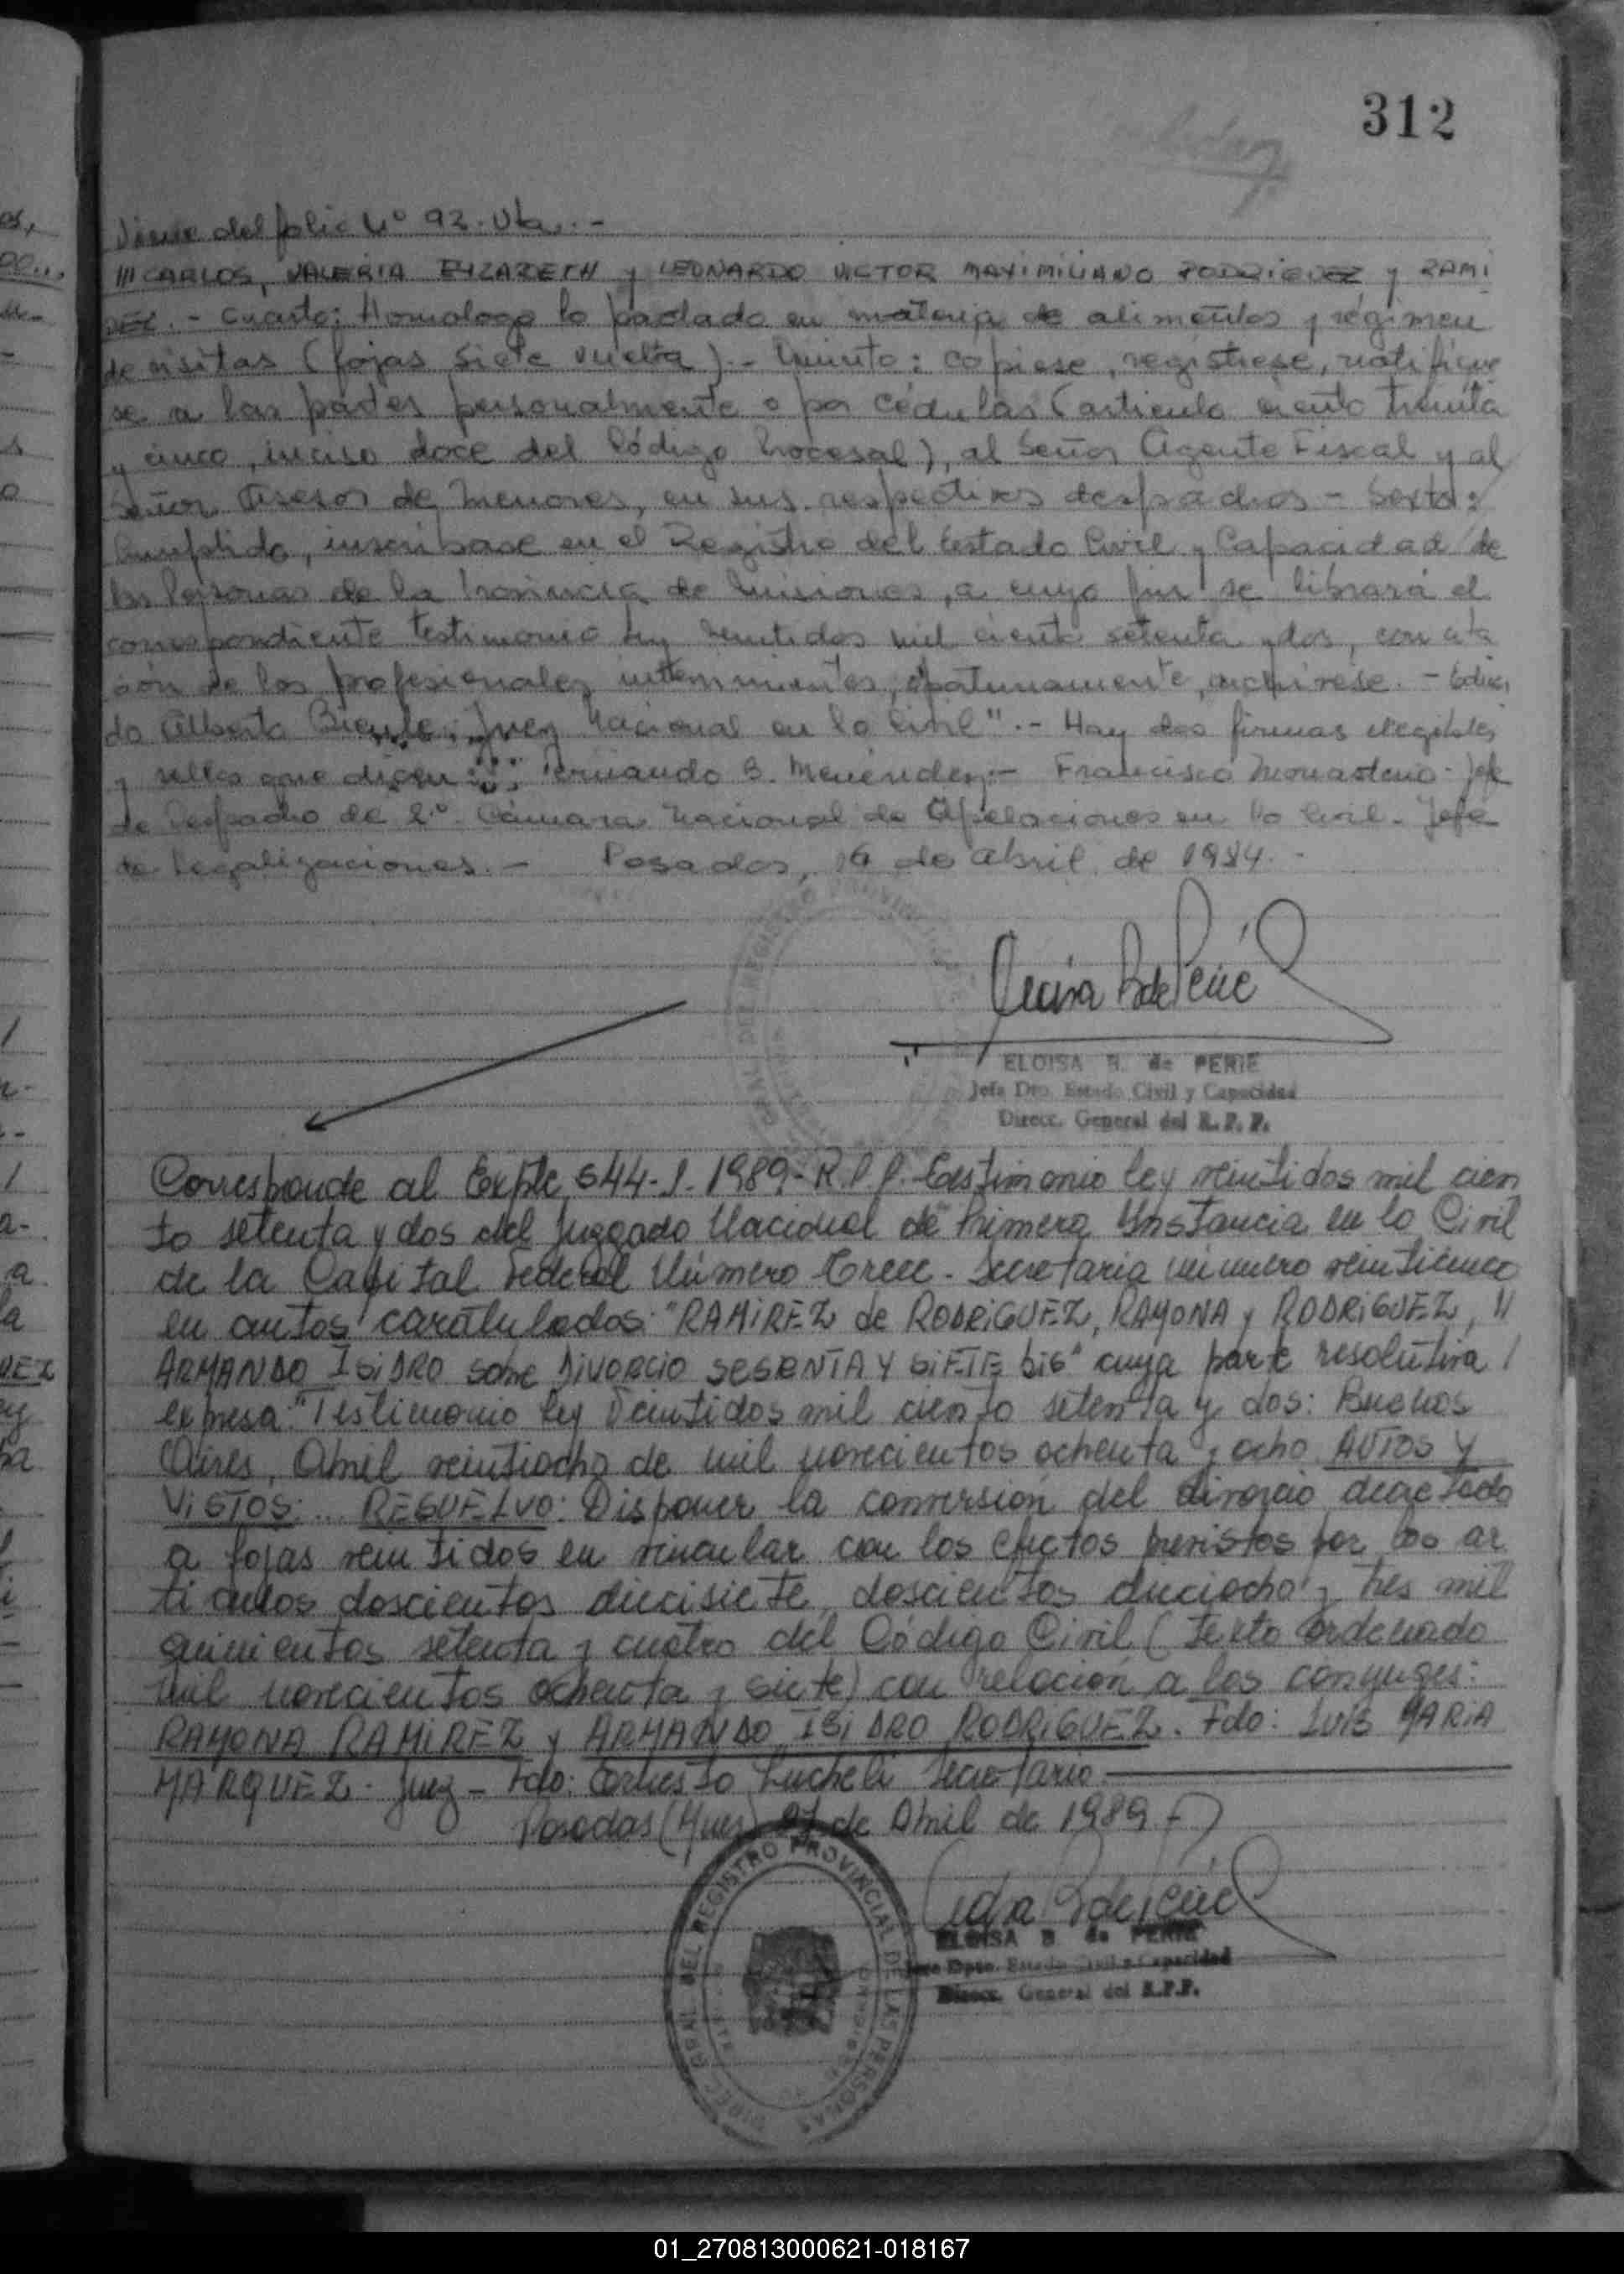 312
Viene del folio Nº 92. Vta. .-
/// CARLOS, VALERIA ELIZABETH y LEONARDO VICTOR MAXIMILIANO RODRIGUEZ y RAMI
REZ. - Cuarto: Homologo lo pactado en materia de alimentos y régimen
de visitas (fojas siete vuelta). - Quinto: copiese, registrese, notifique
se a las partes personalmente o por cédulas (articulo ciento treinta
y cinco, inciso doce del Código Procesal), al Señor Agente Fiscal y al
Señor Asesor de Menores, en sus respectivos despachos - Sexto:
Cumplido, inscribase en el Registro del Estado Civil y Capacidad de
las Personas de la Provincia de Misiones, a cuyo fin se librará el
correspondiente testimonio ley veintidos mil ciento setenta y dos, con cita
ción de los profesionales intervinientes, oportunamente, archivese. -
do Alberto Juez Nacional en lo Civil". - Hay dos firmas ilegibles
y sellos que dicen: Fernando B. Menéndez.- Francisco Monasterio - Jefe
de Despacho de 2º. Cámara Nacional de Apelaciones en lo Civil - Jefe
de Legalizaciones. - Posadas, 16 de Abril de 1984. -
ELOISA B. de PERIE
Jefa Dto. Estado Civil y Capacidad
Direcc. General del R. P. P.
Corresponde al Expte 544-J-1989,- R.P.P. Testimonio ley veintidos mil cien
to setenta y dos del Juzgado Nacional de Primera Instancia en lo Civil
de la Capital Federal Número Trece - Secretaria número veinticinco
en autos caratulados: "RAMIREZ de RODRIGUEZ, RAMONA y RODRIGUEZ, //
ARMANDO ISIDRO sobre DIVORCIO SESENTA Y SIETE bis" cuya parte resolutiva /
expresa: "Testimonio ley Veintidos mil ciento setenta y dos: Buenos
Aires, Abril veintiocho de mil novecientos ochenta y ocho. AUTOS Y
VISTOS: ... RESUELVO: Disponer la conversión del divorcio decretado
a fojas veintidos en vincular con los efectos previstos por los ar
ticulos doscientos diecisiete, doscientos dieciocho y tres mil
quinientos setenta y cuatro del Código Civil (texto ordenado
mil novecientos ochenta y siete) con relación a los cónyuges:
RAMONA RAMIREZ y ARMANDO ISIDRO RODRIGUEZ. Fdo: LUIS MARIA
MARQUEZ - Juez - Fdo: Ernesto Lucheli Secretario.
Posadas (Mnes) 27 de Abril de 1989.-
DIREC. GRAL. DEL REGISTRO PROVINCIAL DE LAS PERSONAS
ELOISA B. de PERIE
Jefe Dpto. Estado Civil y Capacidad
Direcc. General del R.P.P.
01_270813000621-018167